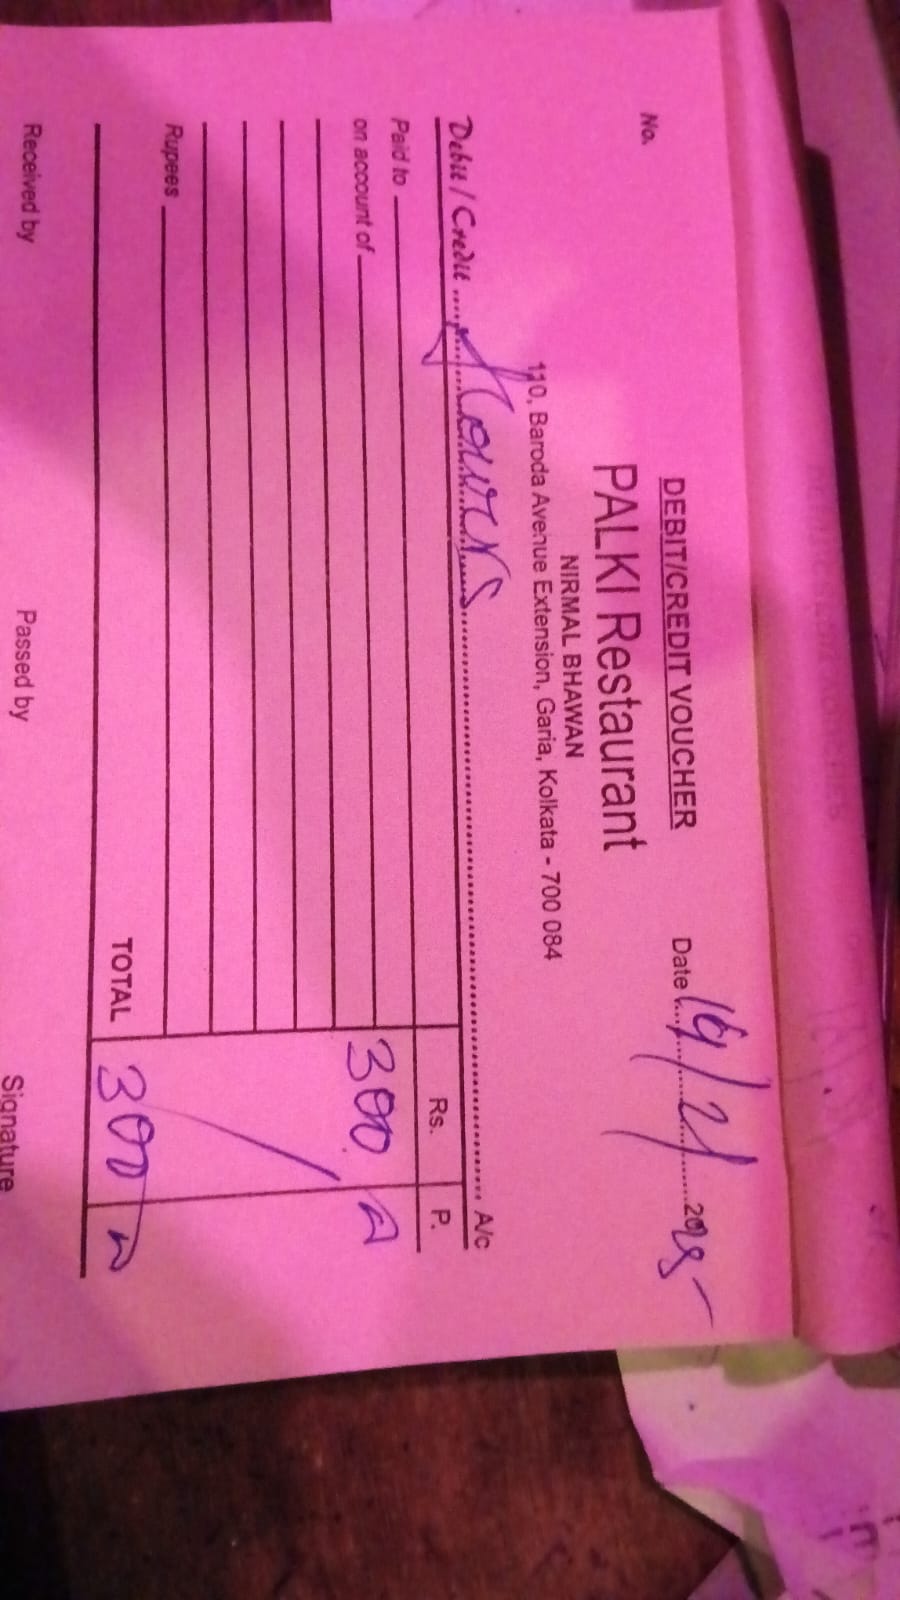 DEBIT/CREDIT VOUCHER
No.
Date 16/2/2025
PALKI Restaurant
NIRMAL BHAWAN
110, Baroda Avenue Extension, Garia, Kolkata - 700 084
Debit / Credit A/c
Paid to Rs. P.
on account of 300
Rupees
TOTAL 300
Received by Passed by Signature